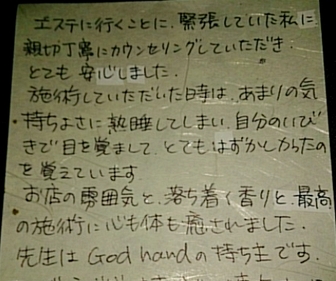 エステに行くことに、緊張していた私に
親切丁寧にカウンセリングしていただき、
とても安心しました。
施術していただいた時は、あまりの気
持ちよさに熟睡してしまい、自分のいび
きで目を覚まして、とてもはずかしかったの
を覚えています。
お店の雰囲気と、落ち着く香りと、最高
の施術に心も体も癒されました。
先生はGod handの持ち主です。